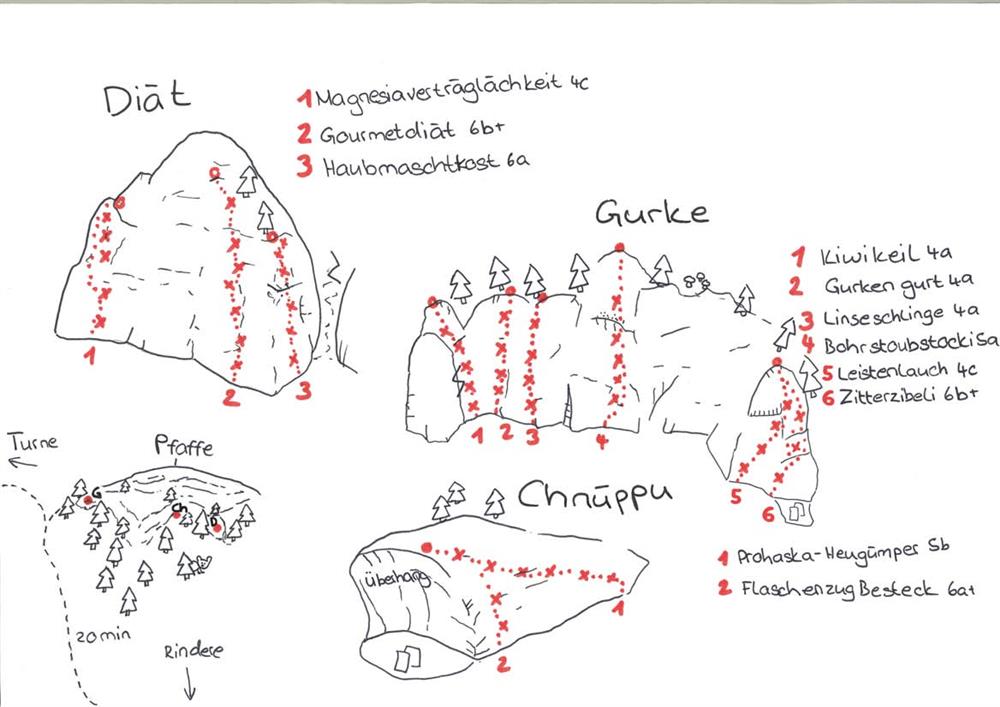 Diät
1 Magnesiaverträglächkeit 4c
2 Gourmetdiät 6b+
3 Haubmaschtkost 6a
1
2
3
Gurke
1 Kiwikeil 4a
2 Gurkengurt 4a
3 Linseschlinge 4a
4 Bohrstoubstocki 5a
5 Leistenlauch 4c
6 Zitterzibeli 6b+
1 2 3 4
5
6
Turne
Pfaffe
G
Ch
D
20min
Rindere
Chnüppu
Überhang
1
2
1 Prohaska-Heugümper 5b
2 Flaschenzug Besteck 6a+